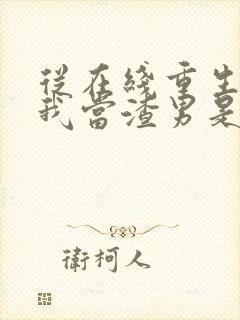 從在綫重生
我當渣男是
衛柯人